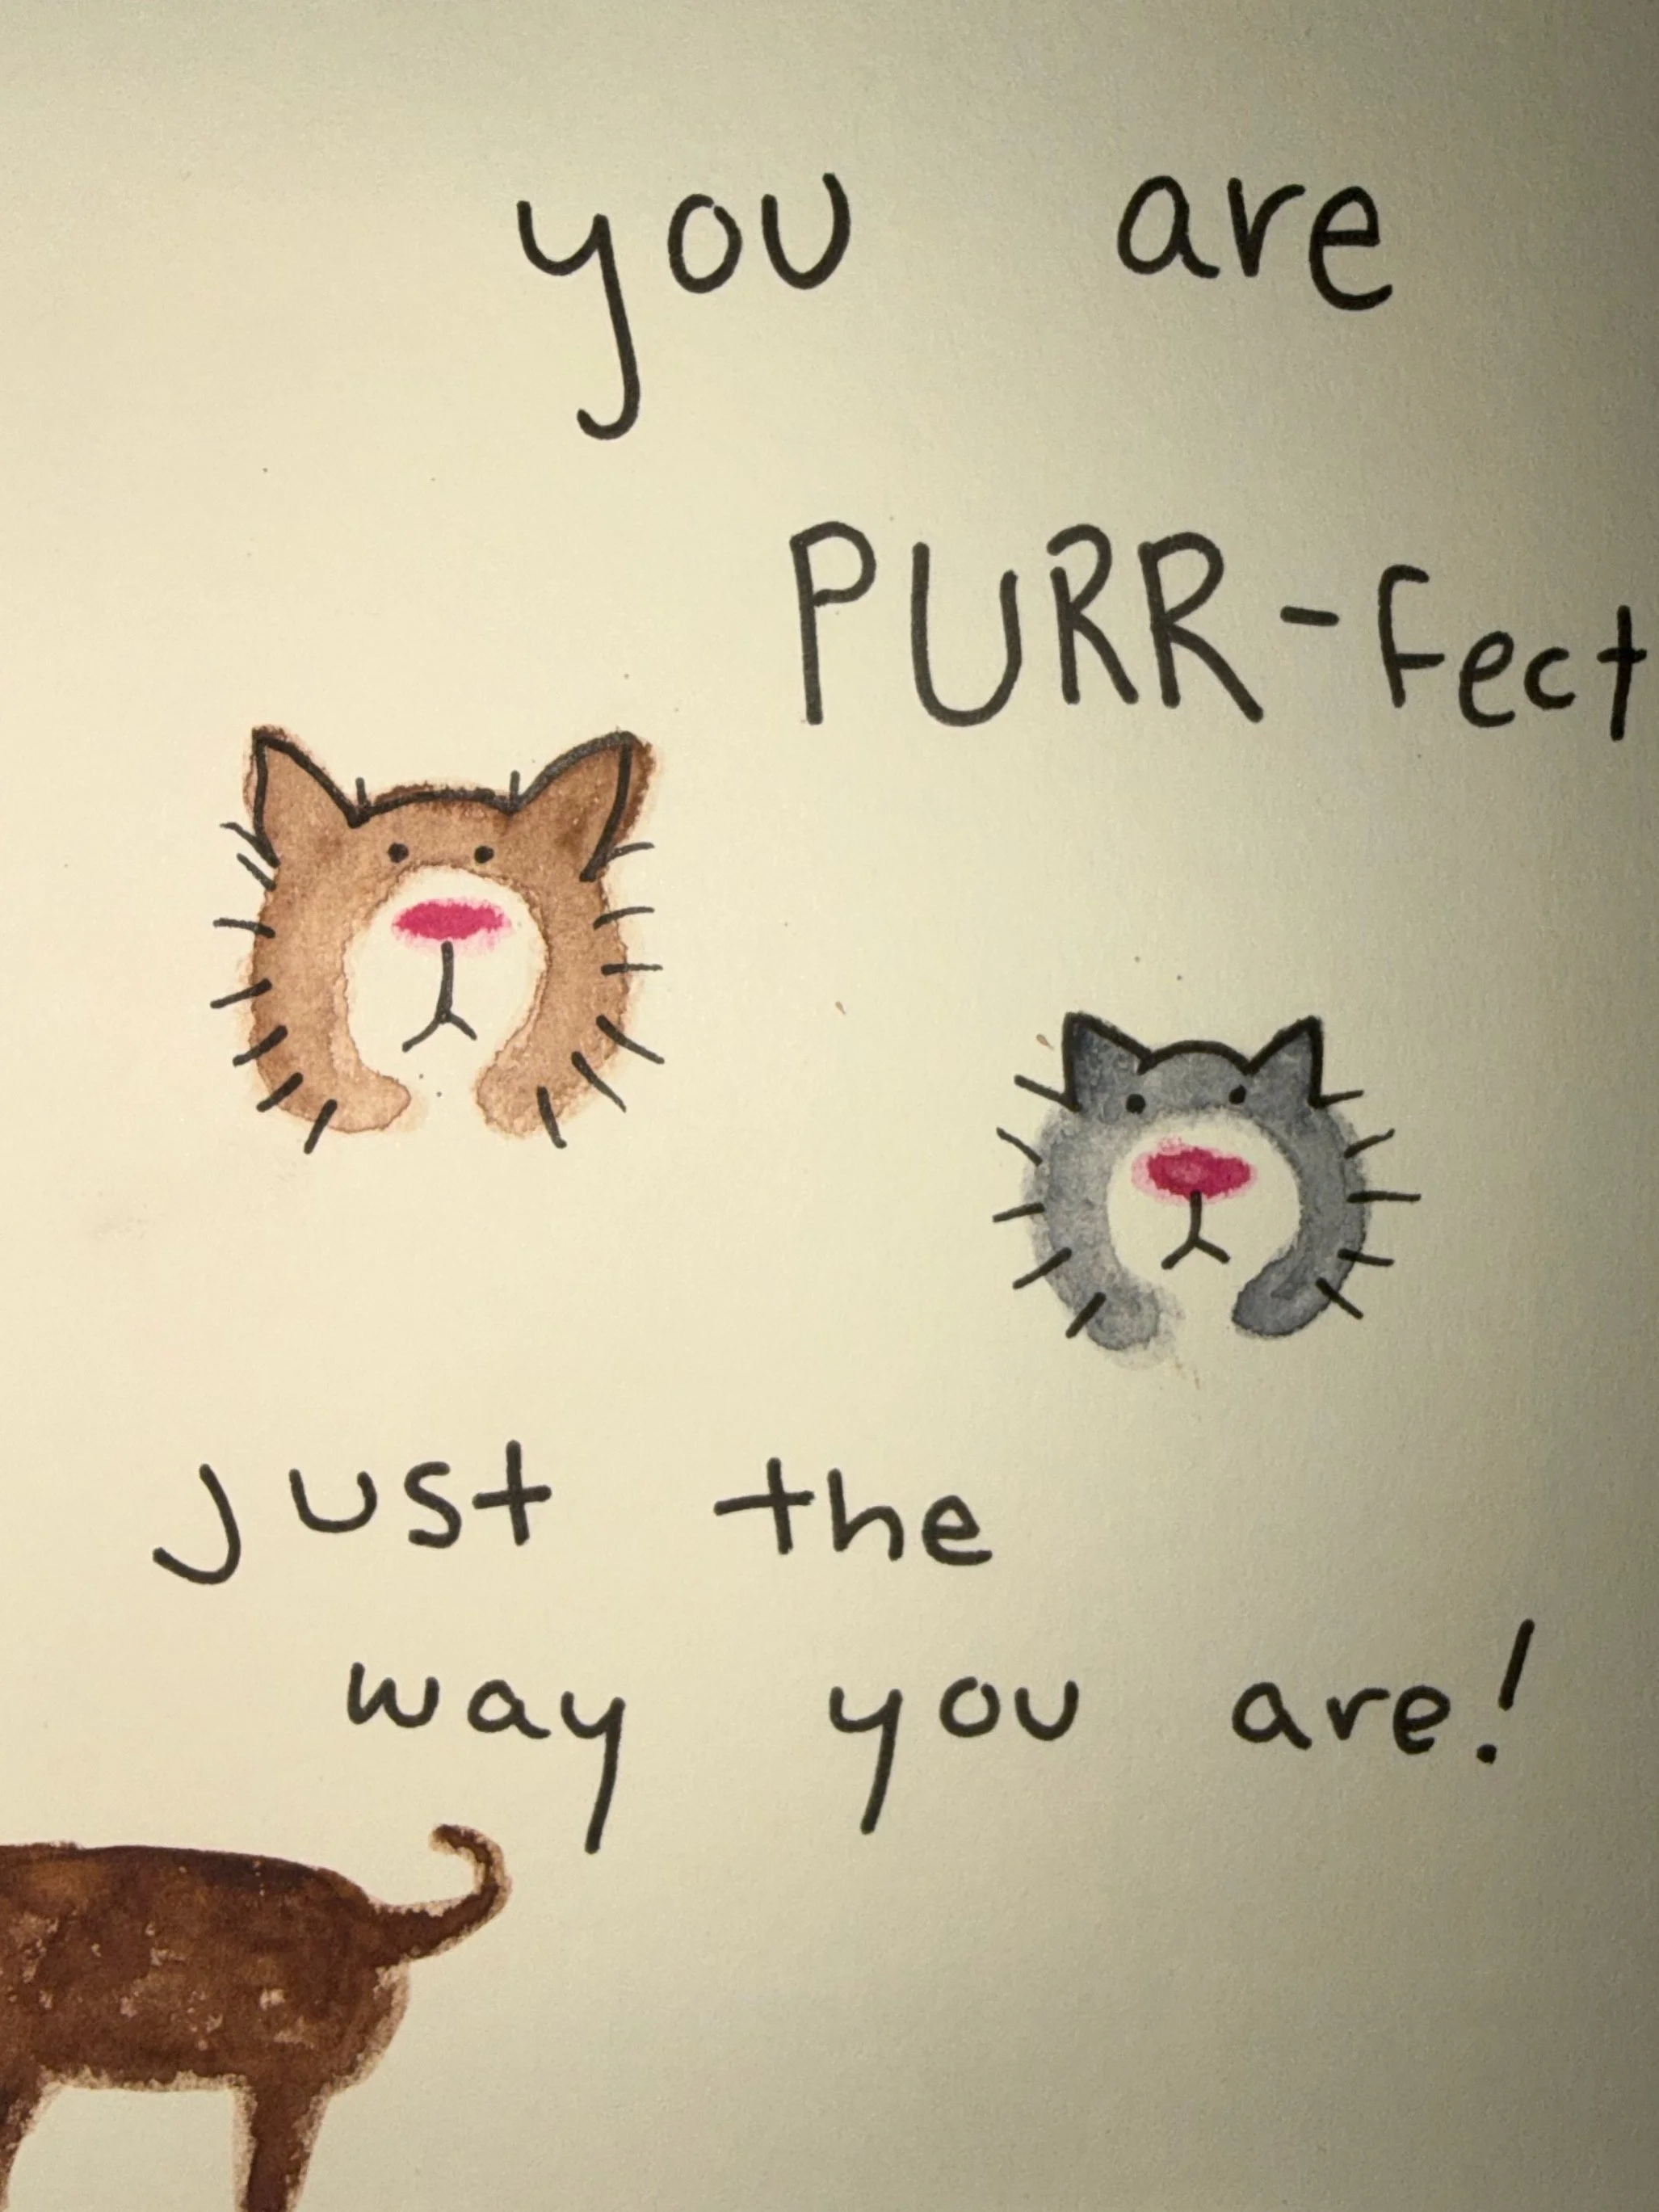 you are
PURR-fect
Just the
way you are!